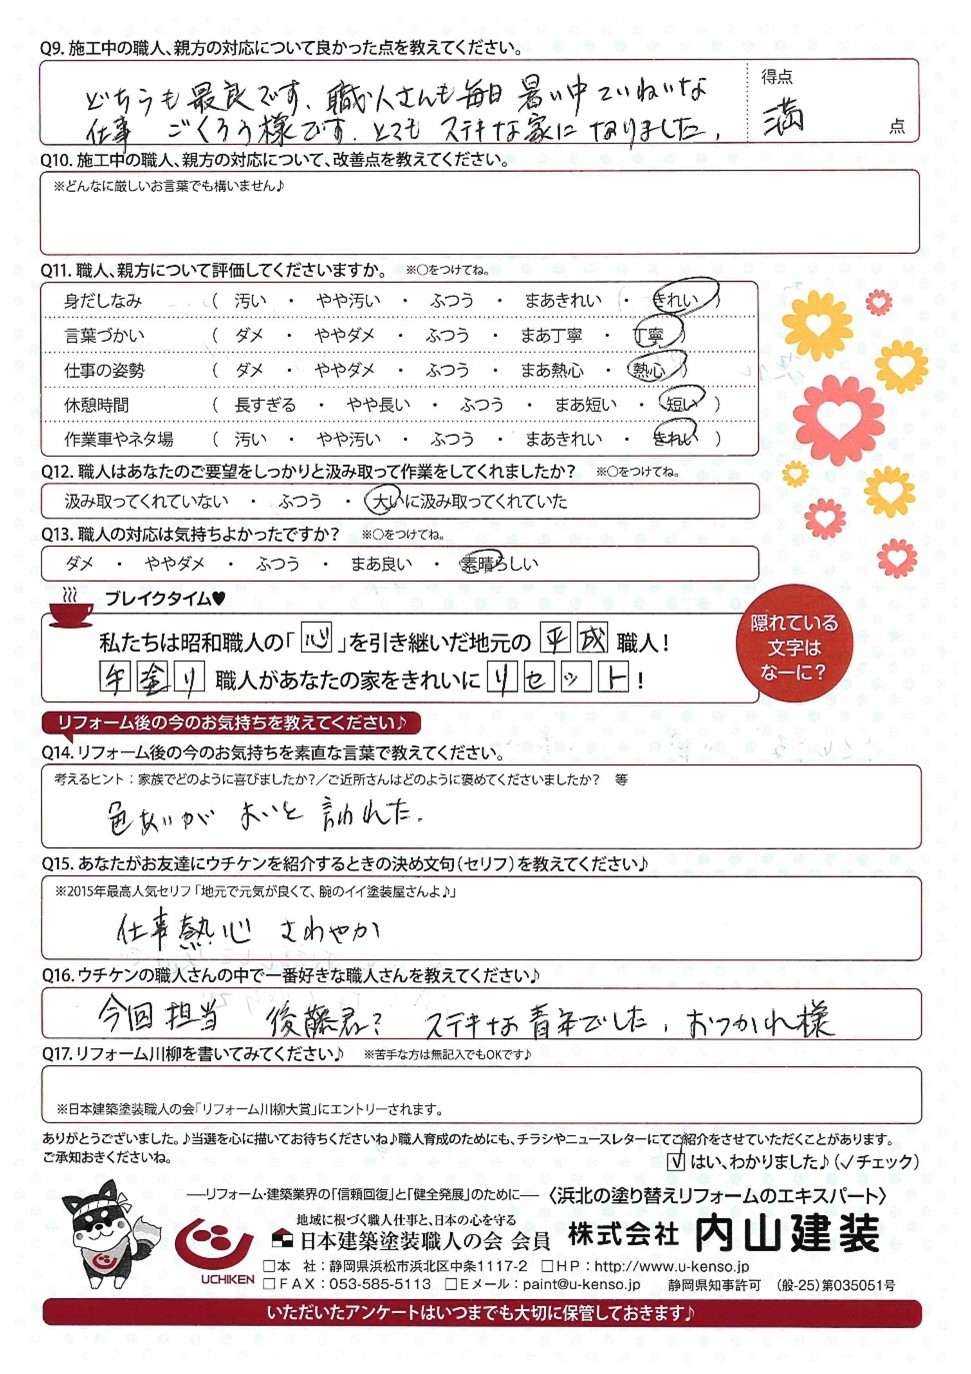 Q9. 施工中の職人、親方の対応について良かった点を教えてください。
どちらも最良です、職人さんも毎日暑い中ていねいな
仕事 ごくろう様です、とても ステキな家に なりました、
得点
満 点
Q10. 施工中の職人、親方の対応について、改善点を教えてください。
※どんなに厳しいお言葉でも構いません♪
Q11. 職人、親方について評価してくださいますか。 ※○をつけてね。
身だしなみ ( 汚い ・ やや汚い ・ ふつう ・ まあきれい ・ きれい )
言葉づかい ( ダメ ・ ややダメ ・ ふつう ・ まあ丁寧 ・ 丁寧 )
仕事の姿勢 ( ダメ ・ ややダメ ・ ふつう ・ まあ熱心 ・ 熱心 )
休憩時間 ( 長すぎる ・ やや長い ・ ふつう ・ まあ短い ・ 短い )
作業車やネタ場 ( 汚い ・ やや汚い ・ ふつう ・ まあきれい ・ きれい )
Q12. 職人はあなたのご要望をしっかりと汲み取って作業をしてくれましたか? ※○をつけてね。
汲み取ってくれていない ・ ふつう ・ 大いに汲み取ってくれていた
Q13. 職人の対応は気持ちよかったですか? ※○をつけてね。
ダメ ・ ややダメ ・ ふつう ・ まあ良い ・ 素晴らしい
ブレイクタイム♥
私たちは昭和職人の「心」を引き継いだ地元の 平成 職人!
手塗り 職人があなたの家をきれいに リセット!
隠れている
文字は
なーに?
リフォーム後の今のお気持ちを教えてください♪
Q14. リフォーム後の今のお気持ちを素直な言葉で教えてください。
考えるヒント:家族でどのように喜びましたか?/ご近所さんはどのように褒めてくださいましたか? 等
色あいが よいと 言われた。
Q15. あなたがお友達にウチケンを紹介するときの決め文句(セリフ)を教えてください♪
※2015年最高人気セリフ「地元で元気が良くて、腕のイイ塗装屋さんよ♪」
仕事熱心 さわやか
Q16. ウチケンの職人さんの中で一番好きな職人さんを教えてください♪
今回担当 後藤君? ステキな青年でした、おつかれ様
Q17. リフォーム川柳を書いてみてください♪ ※苦手な方は無記入でもOKです♪
※日本建築塗装職人の会「リフォーム川柳大賞」にエントリーされます。
ありがとうございました。♪当選を心に描いてお待ちくださいね♪職人育成のためにも、チラシやニュースレターにてご紹介をさせていただくことがあります。
ご承知おきくださいね。
☑ はい、わかりました♪(✓チェック)
―リフォーム・建築業界の「信頼回復」と「健全発展」のために― 〈浜北の塗り替えリフォームのエキスパート〉
地域に根づく職人仕事と、日本の心を守る
日本建築塗装職人の会 会員 株式会社 内山建装
UCHIKEN
□本 社:静岡県浜松市浜北区中条1117-2 □HP:http://www.u-kenso.jp
□FAX:053-585-5113 □Eメール:paint@u-kenso.jp 静岡県知事許可 (般-25)第035051号
いただいたアンケートはいつまでも大切に保管しておきます♪